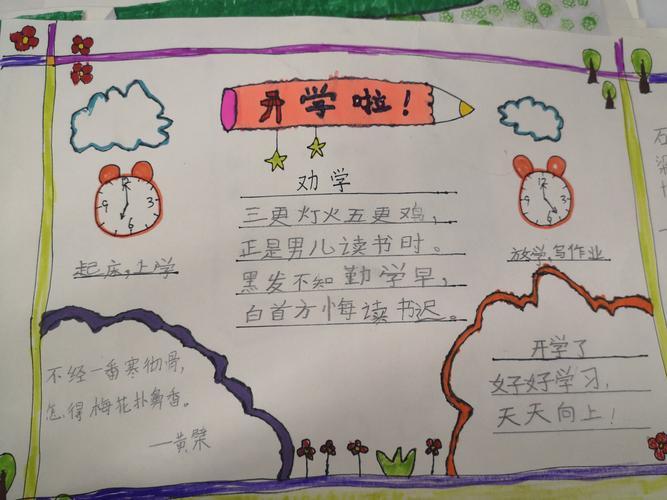 开学啦！
劝学
三更灯火五更鸡，
正是男儿读书时。
黑发不知勤学早，
白首方悔读书迟。
12
9 3
6
起床，上学
12
9 3
6
放学，写作业
不经一番寒彻骨，
怎得梅花扑鼻香。
—黄檗
开学了
好好学习，
天天向上！